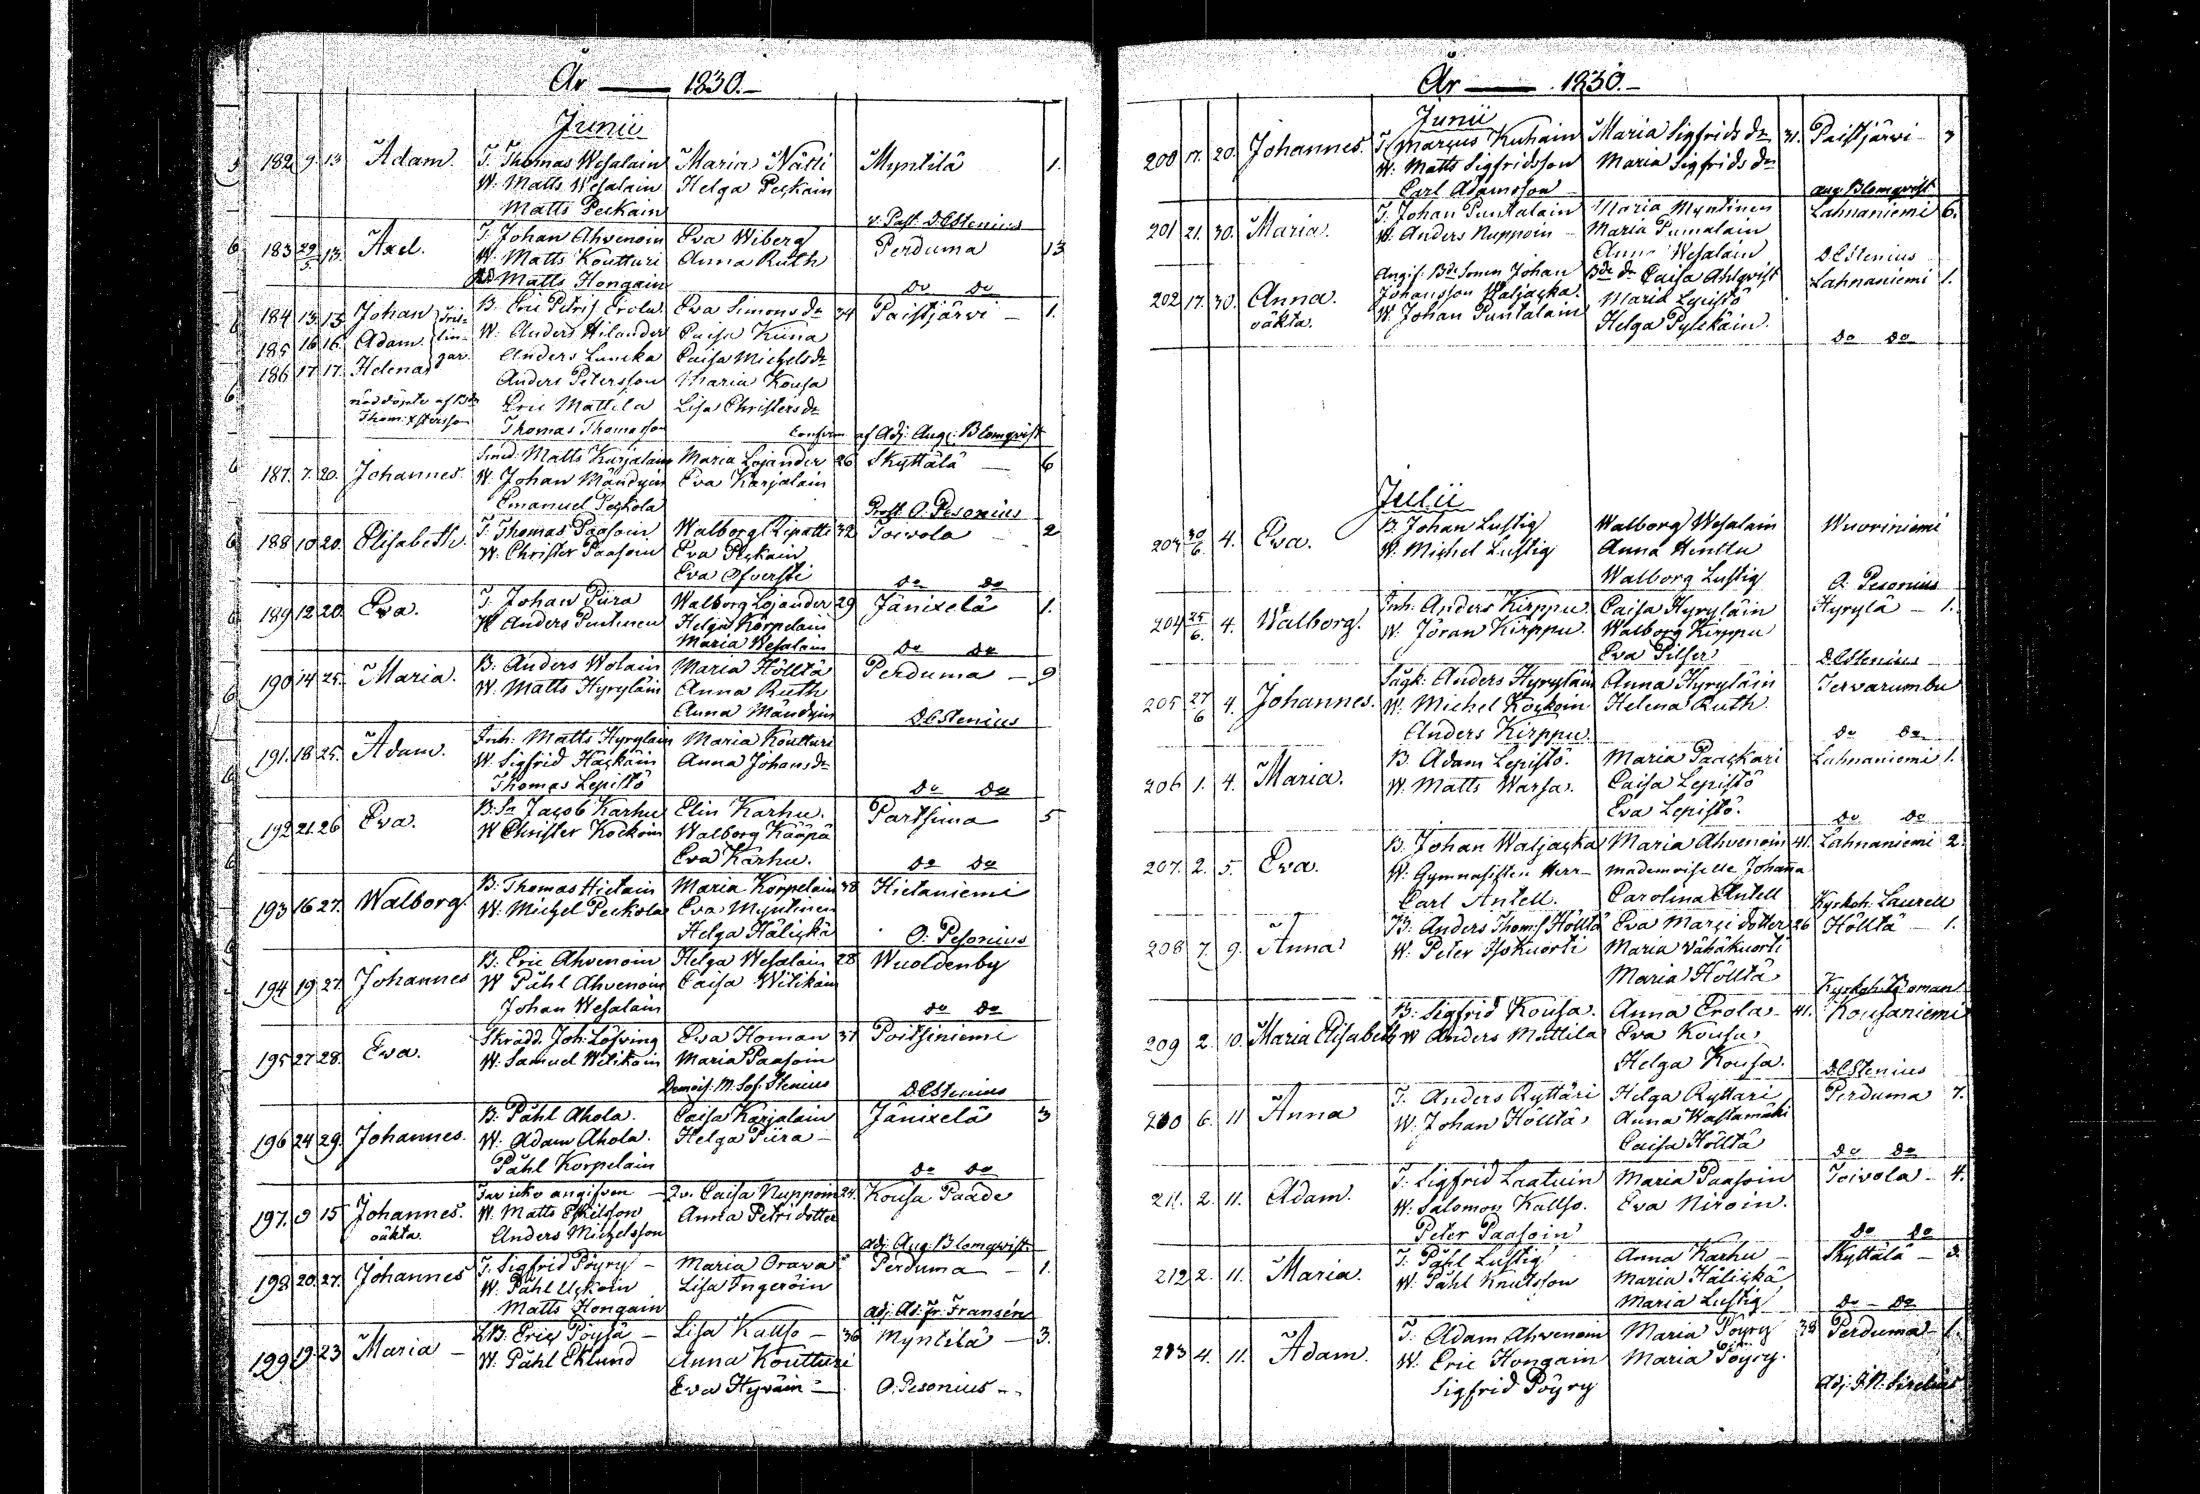 År — 1830.
Junii
182 9. 13 Adam. T. Thomas Wesalain Maria Nätti Myntilä 1.
W. Matts Wesalain Helga Peckain
Matts Peckain
v. Past. D. Stenius
183 29/5. 13. Axel. T. Johan Ahvenoin Eva Wiberg Perduma 13
W. Matts Koutturi Anna Ruth
Matts Hongain do do
184 13. 13. Johan B. Eric Petris. Erola Eva Simons dr 34 Paistjärvi 1.
185 16 16. Adam. W. Anders Hilander Caisa Kiuna
Anders Lanska Caisa Michels dr
186 17. 17. Helena
Anders Petersson Maria Kousa
nöddöpte af
Eric Mattila Lisa Christers dr
Thomas Thomasson
Confirm. af Adj. Aug. Blomqvist
187. 7. 20. Johannes. Smed. Matts Karjalain Maria Lojander 26 Skyttälä 6
W. Johan Mändyin Eva Karjalain
Emanuel Peckola
Prost. O. Pesonius
188 10 20. Elisabeth. T. Thomas Paasoin Walborg Ripatti 32 Toivola 2
W. Christer Paasoin Eva Peckain
Eva Ofversti do do
189 12 20. Eva. T. Johan Piira Walborg Lojander 29 Jänixelä 1.
W Anders Pentinen Helga Korpelain
Maria Wesalain do do
190 14 25. Maria. B. Anders Wolain Maria Hölltä Perduma 9
W. Matts Hyryläin Anna Ruth
Anna Mändyin D. Stenius
191. 18 25. Adam. Inh. Matts Hyryläin Maria Koutturi
W. Sigfrid Häckäin Anna Johans dr
Thomas Lepistö do do
192 21. 26 Eva. B. Sn Jacob Karhu Elin Karhu. Partsima 5
W Christer Kockoin Walborg Kääpä
Eva Karhu. do do
193 16 27. Walborg. B. Thomas Hietain Maria Korpelain 38 Hietaniemi
W. Michel Peckola Eva Myntinen
Helga Hälickä O. Pesonius
194 19. 27. Johannes B. Eric Ahvenoin Helga Wesalain 28 Wuoldenby
W Påhl Ahvenoin Caisa Witikain
Johan Wesalain do do
195 27 28. Eva. Skrädd. Joh. Löfving Eva Homan 37 Poitsiniemi
W. Samuel Witikain Maria Paasoin
Demois. M. Sof. Stenius D. Stenius
196 24 29. Johannes. B. Påhl Ahola. Caisa Karjalain Jänixelä 3
W. Adam Ahola. Helga Piira
Påhl Korpelain do do
197. 9 15 Johannes. Far icke angifven Qv. Caisa Nuppoin 24. Kousa Paade
oäkta. W. Matts Eskilson Anna Petri dotter
Anders Michelsson
Adj. Aug. Blomqvist
198 20. 27. Johannes T. Sigfrid Pöyry Maria Orava Perduma 1.
W. Påhl Uckoin Lisa Ingeröin
Matts Hongain Adj. Ad. Fr. Fransén
199 19 23 Maria B. Eric Pöysä Lisa Kallso 36 Myntilä 3.
W. Påhl Eklund Anna Koutturi
Eva Hyväin O. Pesonius
År — 1830.
Junii
200 17. 20. Johannes. T. Marcus Kuhain Maria Sigfrids dr 31. Paistjärvi 3
W. Matts Sigfridsson Maria Sigfrids dr
Carl Adamsson Aug. Blomqvist
201 21. 30. Maria. T. Johan Puntalain Maria Myntinen Lahnaniemi 6.
W. Anders Nuppoin Maria Pumalain
Anna Wesalain D. Stenius
202 17. 30. Anna. Angif. Bde Sonen Johan Bde dr Caisa Ahlqvist Lahnaniemi 1.
oäkta. Johansson Waljacka. Maria Lepistö
W. Johan Puntalain Helga Pylckäin. do do
Julii
203 30/6. 4. Eva. B. Johan Lustig Walborg Wesalain Wuoriniemi
W. Michel Lustig Anna Hinttu
Walborg Lustig O. Pesonius
204 25/6. 4. Walborg. Inh. Anders Kirppu Caisa Hyryläin Hyrylä 1.
W. Jöran Kirppu. Walborg Kirppu
Eva Silfer D. Stenius
205 27/6 4. Johannes. Anders Hyryläin Anna Hyryläin Tervarumbu
W. Michel Kockoin Helena Ruth
Anders Kirppu. do do
206 1. 4. Maria. B. Adam Lepistö. Maria Paackari Lahnaniemi 1.
W. Matts Warsa. Caisa Lepistö
Eva Lepistö. do do
207. 2. 5. Eva. B. Johan Waljacka Maria Ahvenoin 41. Lahnaniemi 2.
W. Gymnasisten Herr mademoiselle Johanna
Carl Antell. Carolina Antell Kyrkoh. Laurell
208 7. 9. Anna B. Anders Thoms. Hölltä Eva Marci dotter 26 Hölltä 1.
W. Peter Isokuorti Maria Vähäkuorti
Maria Hölltä Kyrkoh. Homan
209 2. 10. Maria Elisabeth B. Sigfrid Kousa. Anna Erola 41. Kousaniemi
W Anders Mattila Eva Kousa
Helga Kousa. D. Stenius
210 6. 11 Anna T. Anders Ryttäri Helga Ryttari Perduma 7.
W. Johan Hölltä Anna Wastamäki
Caisa Hölltä do do
211. 2. 11. Adam. T. Sigfrid Laatuin Maria Paasoin Toivola 4.
W. Salomon Kallso. Eva Niroin.
Peter Paasoin do do
212 2. 11. Maria. T. Påhl Lustig Anna Karhu Skyttälä 3.
W. Påhl Knutsson Maria Hälickä
Maria Lustig do do
213 4. 11. Adam. T. Adam Ahvenoin Maria Pöyry 38 Perduma 1.
W. Eric Hongain Maria Pöyry.
Sigfrid Pöyry Adj. J. N. Sirelius